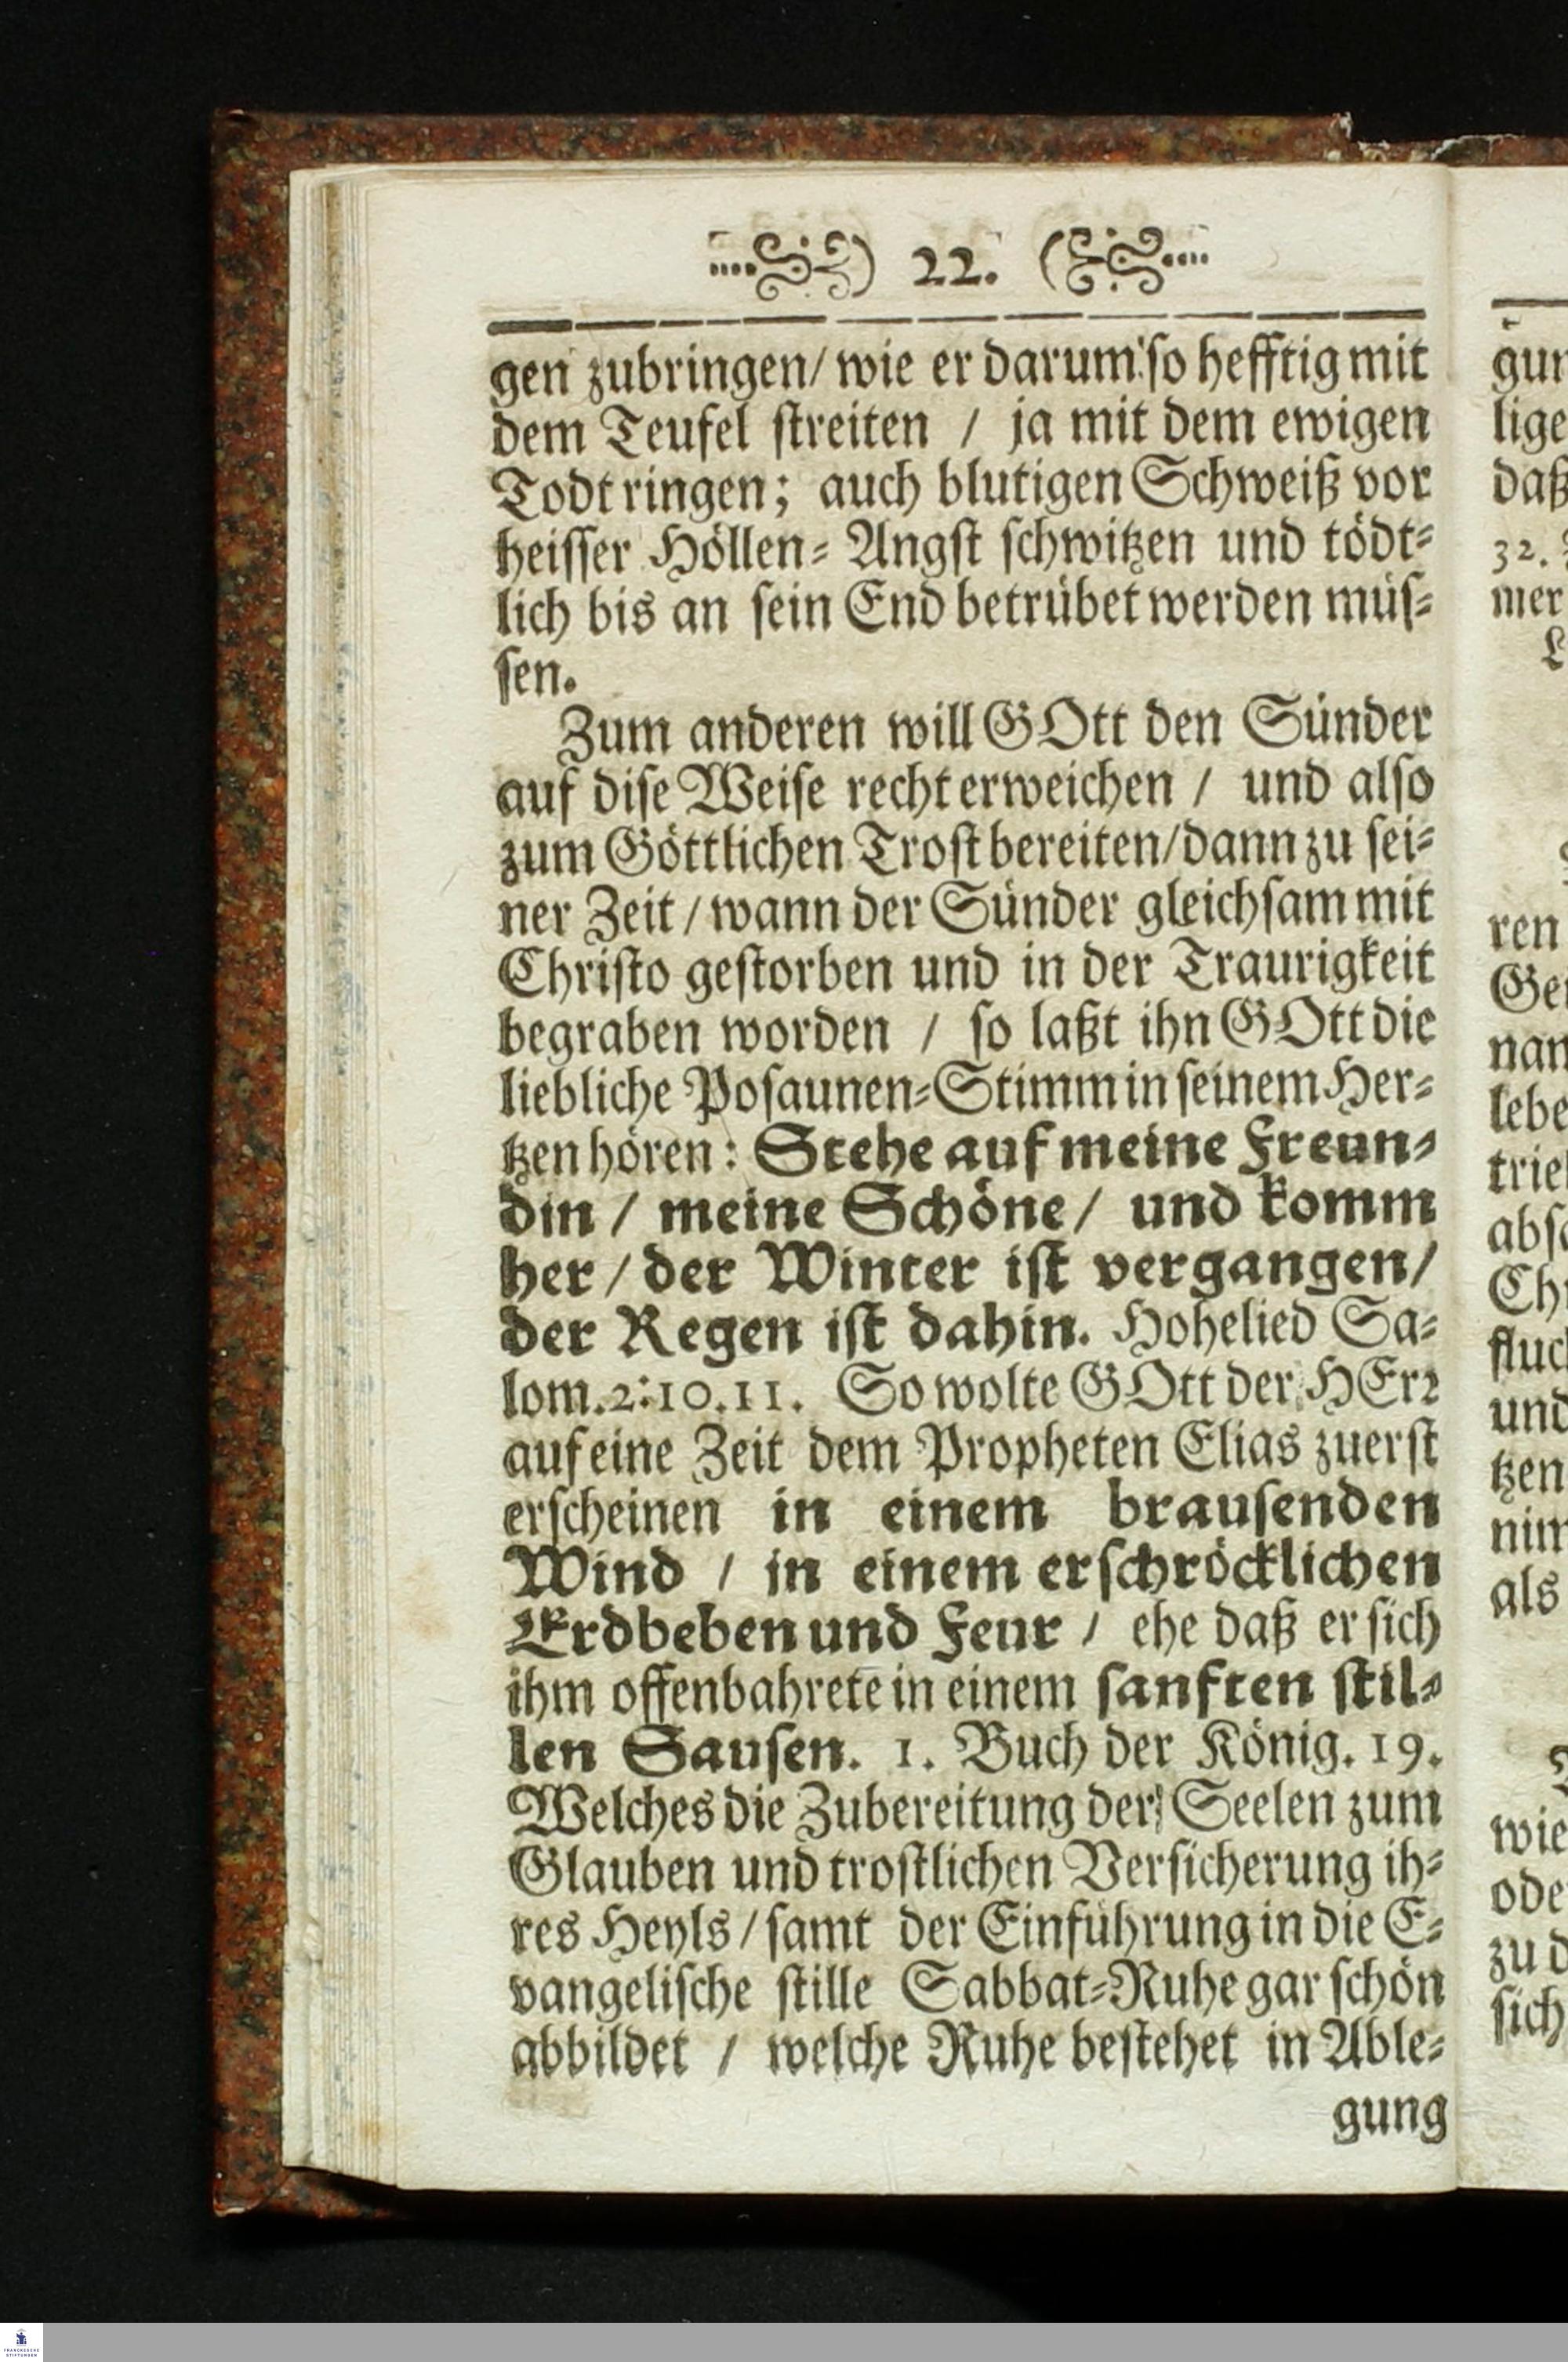 ) 22. (
gen zubringen/ wie er darum so hefftig mit
dem Teufel streiten / ja mit dem ewigen
Todt ringen; auch blutigen Schweiß vor
heisser Höllen- Angst schwitzen und tödt-
lich bis an sein End betrübet werden müs-
sen.
Zum anderen will GOtt den Sünder
auf dise Weise recht erweichen / und also
zum Göttlichen Trost bereiten/dann zu sei-
ner Zeit / wann der Sünder gleichsam mit
Christo gestorben und in der Traurigkeit
begraben worden / so laßt ihn GOtt die
liebliche Posaunen-Stimm in seinem Her-
tzen hören: Stehe auf meine Freun-
din / meine Schöne/ und komm
her / der Winter ist vergangen/
der Regen ist dahin. Hohelied Sa-
lom.2:10.11. So wolte GOtt der HErr
auf eine Zeit dem Propheten Elias zuerst
erscheinen in einem brausenden
Wind / in einem erschröcklichen
Erdbeben und Feur / ehe daß er sich
ihm offenbahrete in einem sanften stil-
len Sausen. 1. Buch der König. 19.
Welches die Zubereitung der Seelen zum
Glauben und trostlichen Versicherung ih-
res Heyls / samt der Einführung in die E-
vangelische stille Sabbat-Ruhe gar schön
abbildet / welche Ruhe bestehet in Able-
gung
gun
lige
daß
32.
mer
ren
nan
lebe
trie
und
tzen
als
wie
ode
zu d
sich
FRANCKESCHE
STIFTUNGEN